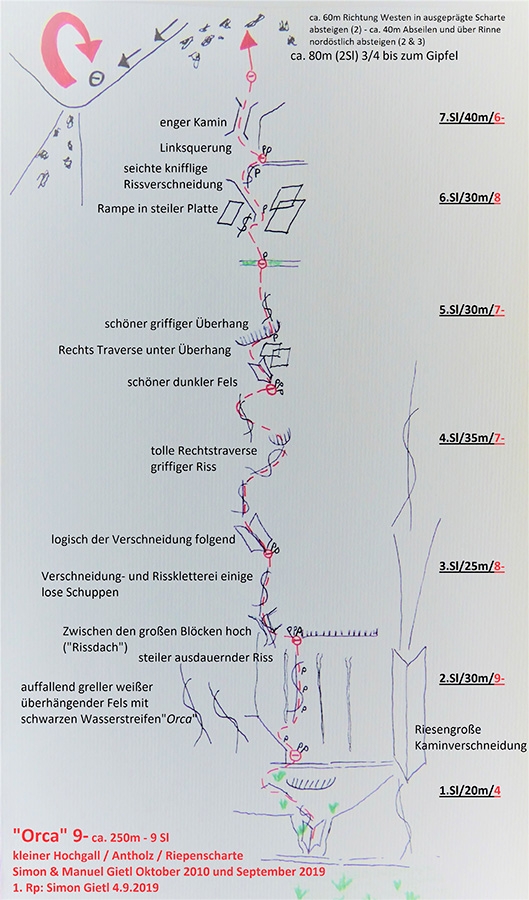 ca. 60m Richtung Westen in ausgeprägte Scharte
absteigen (2) - ca. 40m Abseilen und über Rinne
nordöstlich absteigen (2 & 3)
ca. 80m (2Sl) 3/4 bis zum Gipfel
enger Kamin
7.Sl/40m/6-
Linksquerung
seichte knifflige
Rissverschneidung
6.Sl/30m/8
Rampe in steiler Platte
5.Sl/30m/7-
schöner griffiger Überhang
Rechts Traverse unter Überhang
schöner dunkler Fels
4.Sl/35m/7-
tolle Rechtstraverse
griffiger Riss
logisch der Verschneidung folgend
3.Sl/25m/8-
Verschneidung- und Risskletterei einige
lose Schuppen
Zwischen den großen Blöcken hoch
("Rissdach")
steiler ausdauernder Riss
2.Sl/30m/9-
auffallend greller weißer
überhängender Fels mit
schwarzen Wasserstreifen"Orca"
Riesengroße
Kaminverschneidung
1.Sl/20m/4
"Orca" 9- ca. 250m - 9 Sl
kleiner Hochgall / Antholz / Riepenscharte
Simon & Manuel Gietl Oktober 2010 und September 2019
1. Rp: Simon Gietl 4.9.2019